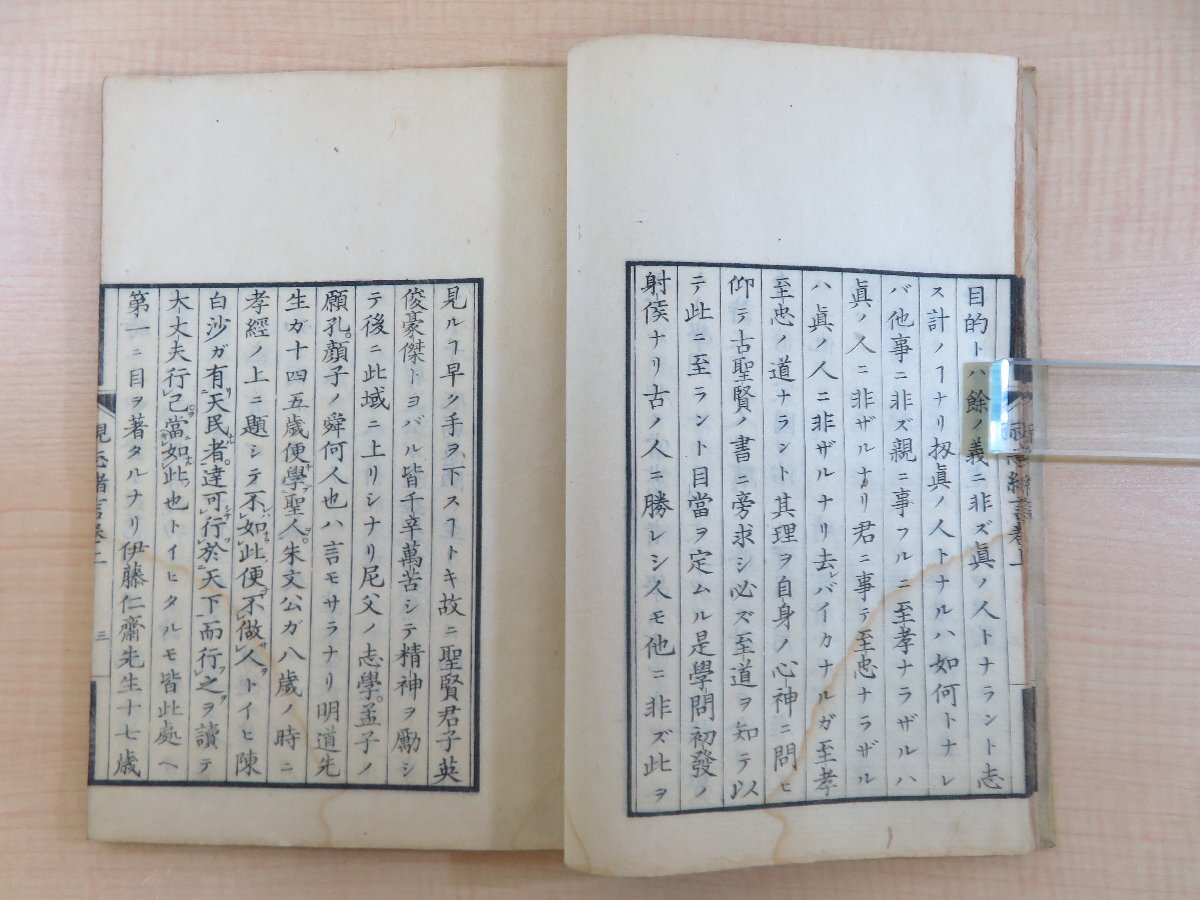 目的トハ餘ノ義ニ非ズ眞ノ人トナラント志
ス計ノヿナリ扨眞ノ人トナルハ如何トナレ
バ他事ニ非ズ親ニ事フルニ至孝ナラザルハ
眞ノ人ニ非ザルナリ君ニ事テ至忠ナラザル
ハ眞ノ人ニ非ザルナリ去レバイカナルガ至孝
至忠ノ道ナラント其理ヲ自身ノ心神ニ問ヒ
仰テ古聖賢ノ書ニ旁求シ必ズ至道ヲ知テ以
テ此ニ至ラント目當ヲ定ムル是學問初發ノ
射侯ナリ古ノ人ニ勝レシ人モ他ニ非ズ此ヲ
見ルヿ早ク手ヲ下スヿトキ故ニ聖賢君子英
俊豪傑トヨバル皆千辛萬苦シテ精神ヲ勵シ
テ後ニ此域ニ上リシナリ尼父ノ志學。孟子ノ
願孔。顏子ノ舜何人也ハ言モサラナリ明道先
生ガ十四五歲便學聖人。朱文公ガ八歲ノ時ニ
孝經ノ上ニ題シテ不如此便不做人トイヒ陳
白沙ガ有天民者。達可行於天下而行之ヲ讀テ
大丈夫行己當如此也トイヒタルモ皆此処ヘ
第一ニ目ヲ著タルナリ伊藤仁齋先生十七歲
三